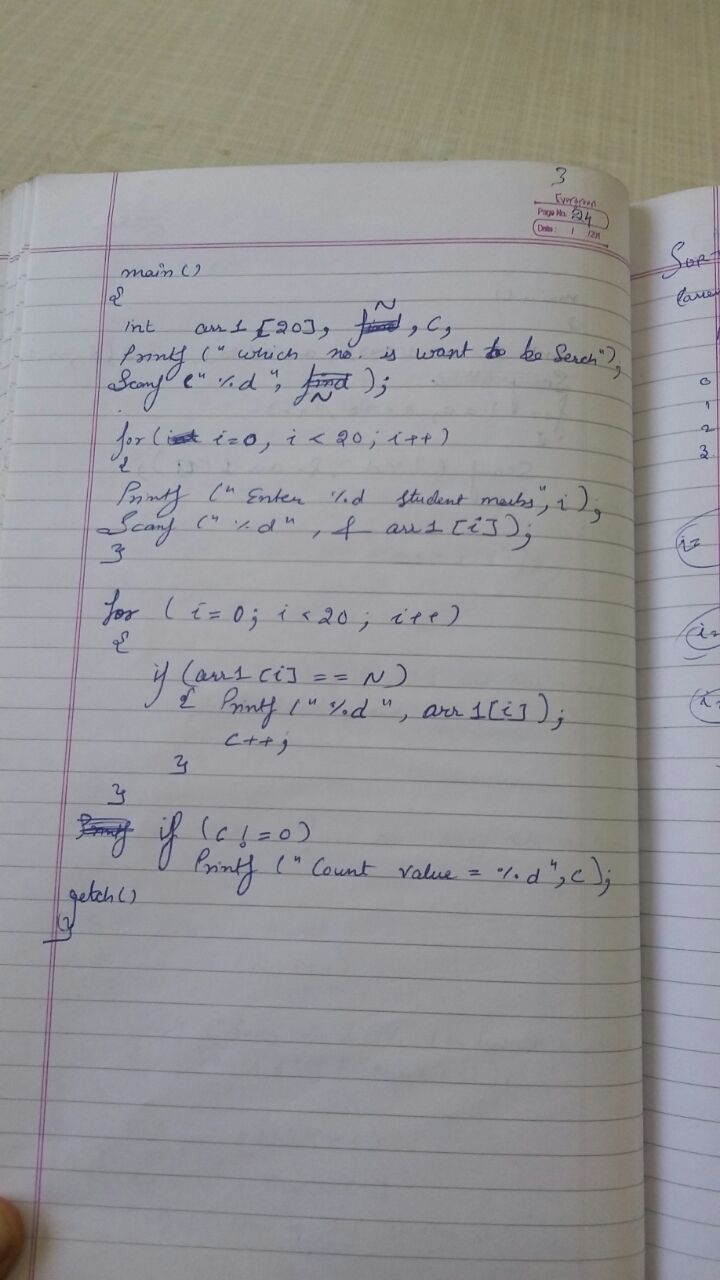 3
Evergreen
Page No. 24
Date: 1 /201
main()
{
int arr1 [20], N, C,
Printf (" which no. is want to be Serch");
Scanf (" %d ", N );
for( i=0, i < 20; i++)
{
Printf (" Enter %d student marks", i );
Scanf (" %d ", & arr1 [i]);
}
for ( i = 0; i < 20 ; i++)
{
if (arr1 [i] == N)
{ Printf (" %d ", arr 1[i] );
C++;
}
}
if (C != 0)
Printf (" Count value = %d ", C );
getch()
}
0
1
2
3
i=